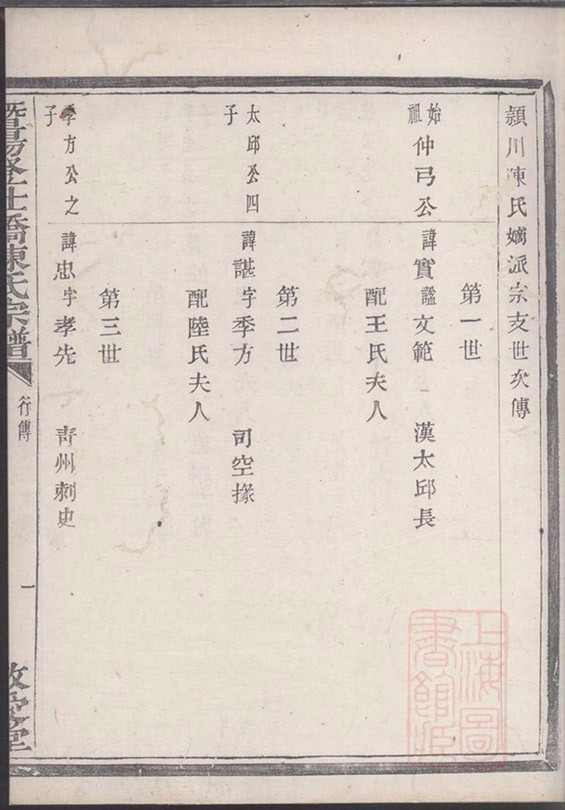 潁川陳氏嫡派宗支世次傳
第一世
始祖仲弓公 諱實謚文範 漢太邱長
配王氏夫人
第二世
太邱公四子 諱諶字季方 司空掾
配陸氏夫人
第三世
季方公之子 諱忠字孝先 青州刺史
暨陽登仕橋陳氏宗譜 行傳 一
上海圖書館藏